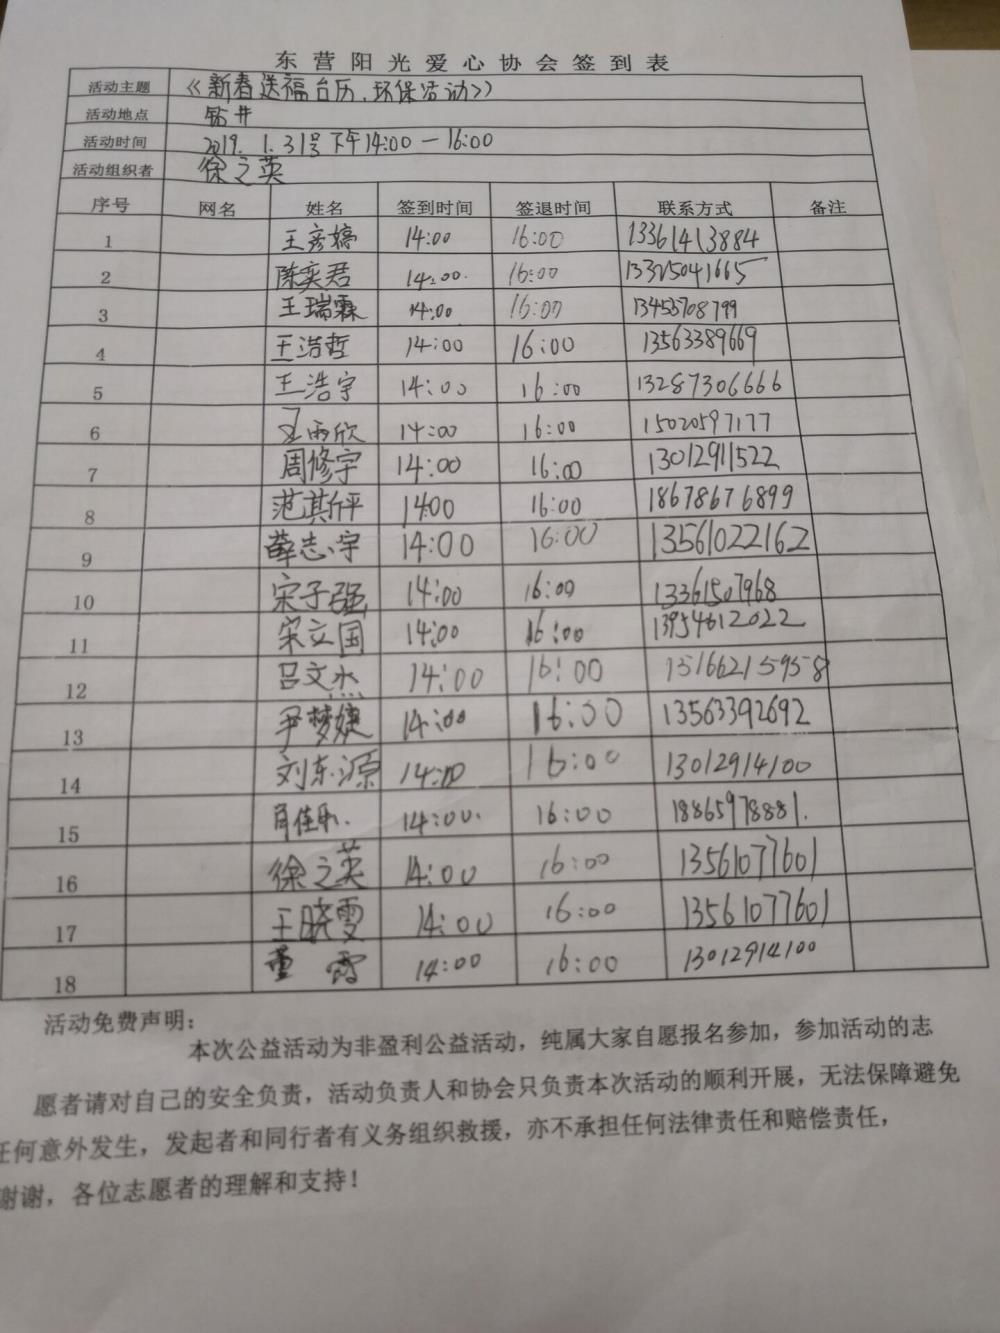 东营阳光爱心协会签到表
活动主题 《新春送福台历、环保活动》
活动地点 钻井
活动时间 2019.1.31号下午14:00—16:00
活动组织者 徐之英
序号 网名 姓名 签到时间 签退时间 联系方式 备注
1 王彦婷 14:00 16:00 13361413884
2 陈奕君 14:00. 16:00 13325041665
3 王瑞霖 14:00 16:00 13455708799
4 王浩哲 14:00 16:00 13563389669
5 王浩宇 14:00 16:00 13287306666
6 王雨欣 14:00 16:00 15020597177
7 周修宇 14:00 16:00 13012911522
8 范淇平 14:00 16:00 18678676899
9 薛志宇 14:00 16:00 13561022162
10 宋子强 14:00 16:00 13361507968
11 宋立国 14:00 16:00 13954612022
12 吕文杰 14:00 16:00 13166215958
13 尹梦婕 14:00 16:00 13563392692
14 刘东源 14:00 16:00 13012914100
15 14:00. 16:00 18865978881.
16 徐之英 14:00 16:00 13561077601
17 王晓雯 14:00 16:00 13561077601
18 董雪 14:00 16:00 13012914100
活动免费声明：
本次公益活动为非盈利公益活动，纯属大家自愿报名参加，参加活动的志
愿者请对自己的安全负责，活动负责人和协会只负责本次活动的顺利开展，无法保障避免
任何意外发生，发起者和同行者有义务组织救援，亦不承担任何法律责任和赔偿责任，
谢谢，各位志愿者的理解和支持！